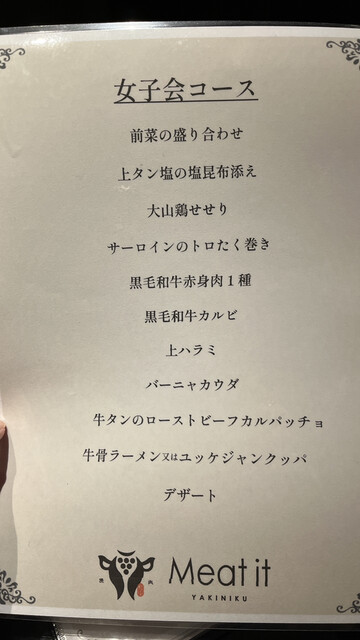 女子会コース
前菜の盛り合わせ
上タン塩の塩昆布添え
大山鶏せせり
サーロインのトロたく巻き
黒毛和牛赤身肉1種
黒毛和牛カルビ
上ハラミ
バーニャカウダ
牛タンのローストビーフカルパッチョ
牛骨ラーメン又はユッケジャンクッパ
デザート
Meat it
YAKINIKU